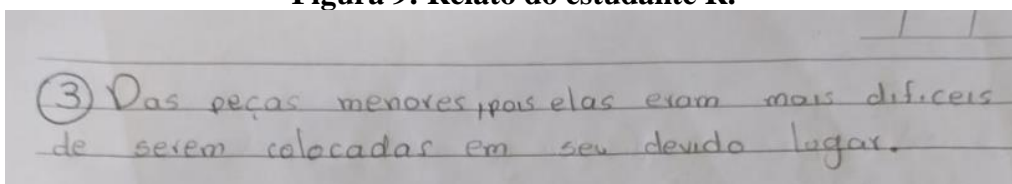 Figura 9: Relato do estudante R.
③ Das peças menores, pois elas eram mais dificeis
de serem colocadas em seu devido lugar.